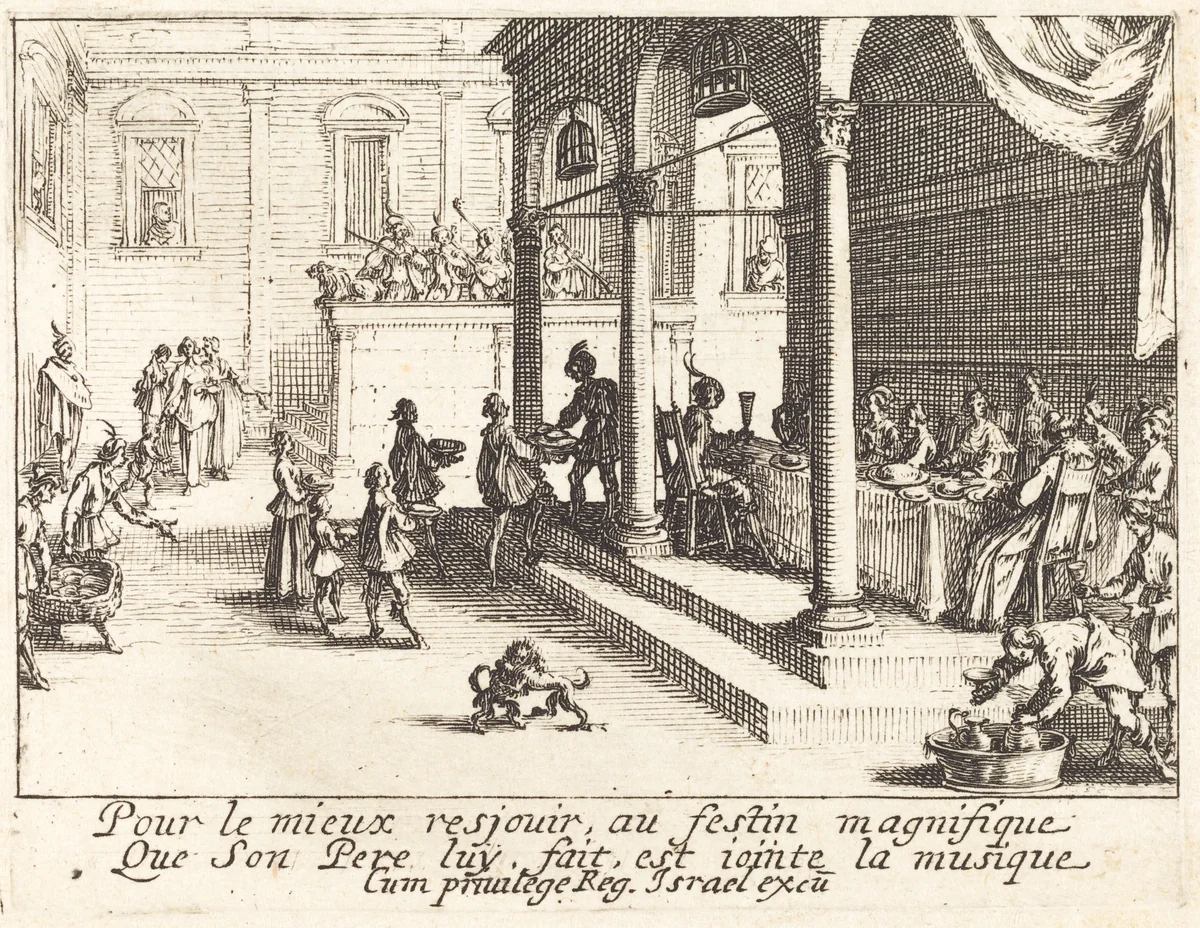 Pour le mieux resjouir, au festin magnifique
Que Son Pere luy, fait, est iointe la musique
Cum priuilege Reg. Israel excũ